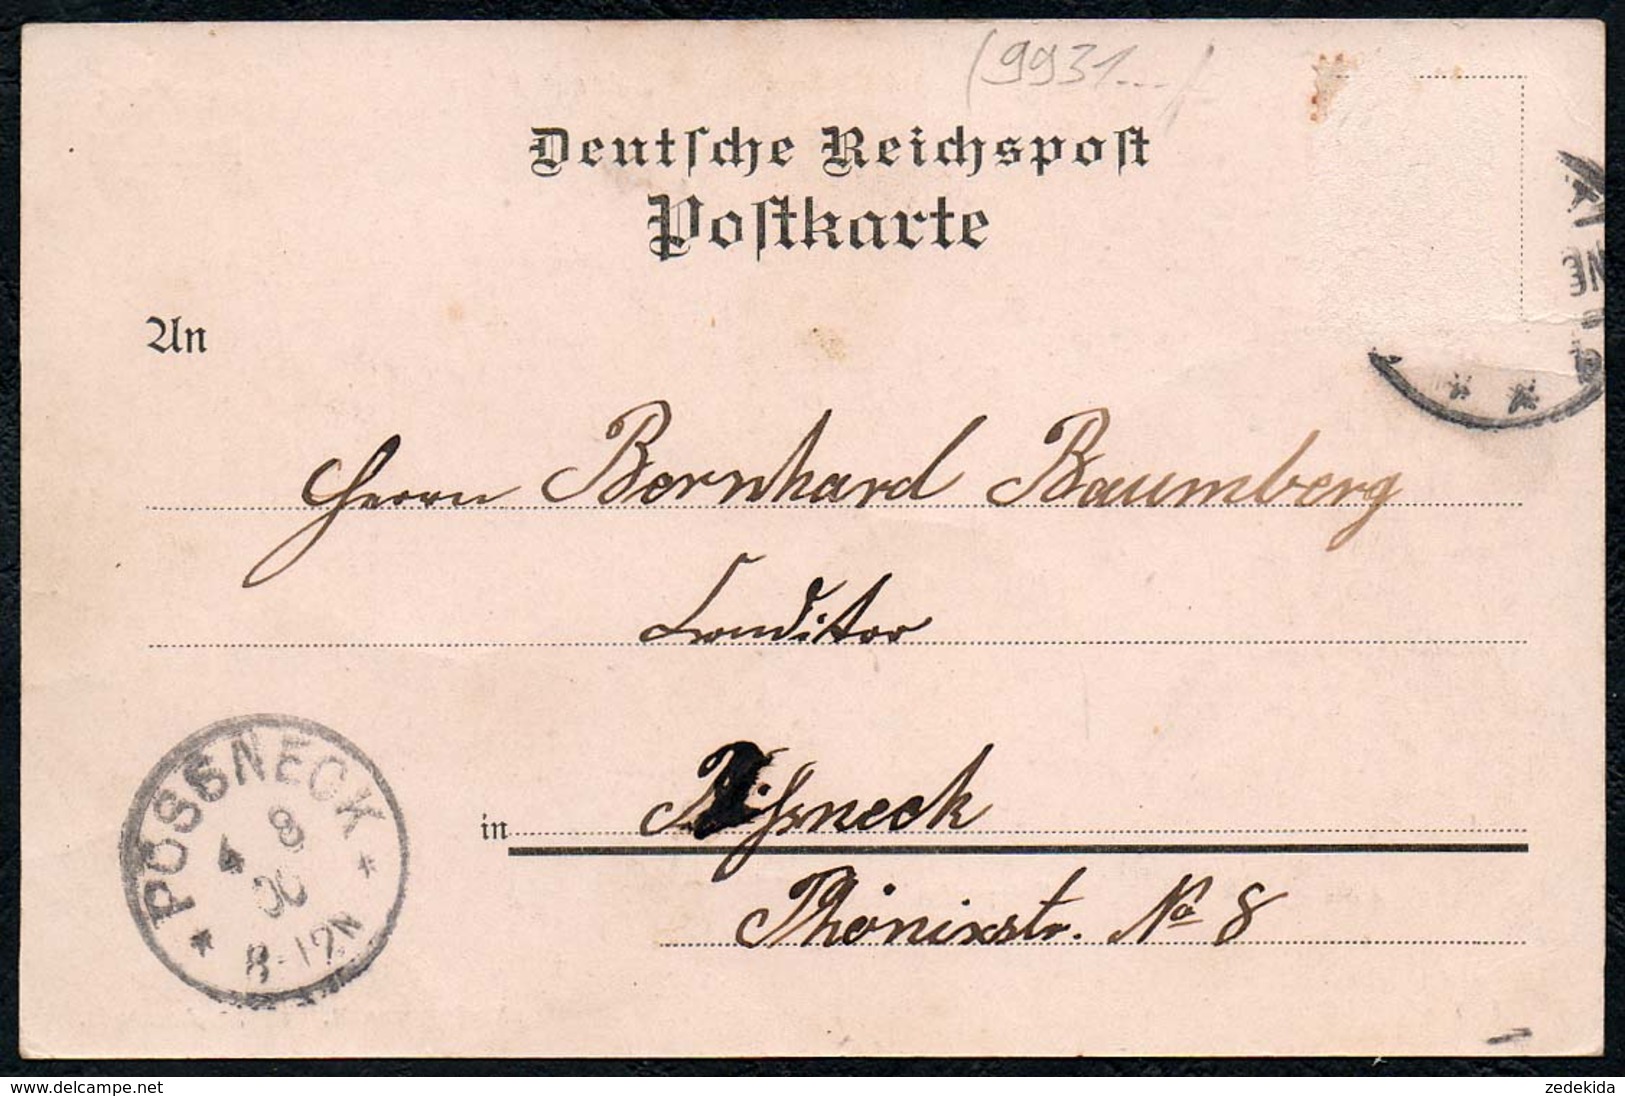 (9931...
Deutsche Reichspost
Postkarte
An
Herrn Bernhard Baumberg
Conditor
in Pößneck
Phönixstr. No 8
PÖSSNECK
4 8
00
8-12N
NE
www.delcampe.net
zedekida